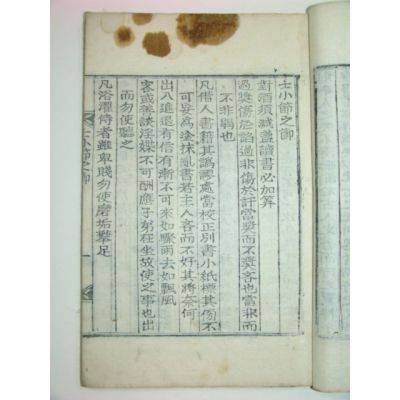 士小節之御
對酒須減盞讀書必加算
過奬傷於諂過非傷於訐當奬而不奬吝也當非而
不非也
凡借人書籍其譌謬處當校正別書小紙標其傍不
可妄爲塗抹亂書若主人吝而不好其將奈何
出入進退有信有漸不可來如驟雨去如飄風
客或雜談淫媟不可酬應子弟在坐故使之事也出
而勿使聽之
凡浴濯侍者雖卑賤勿使磨垢擎足
士小節之御